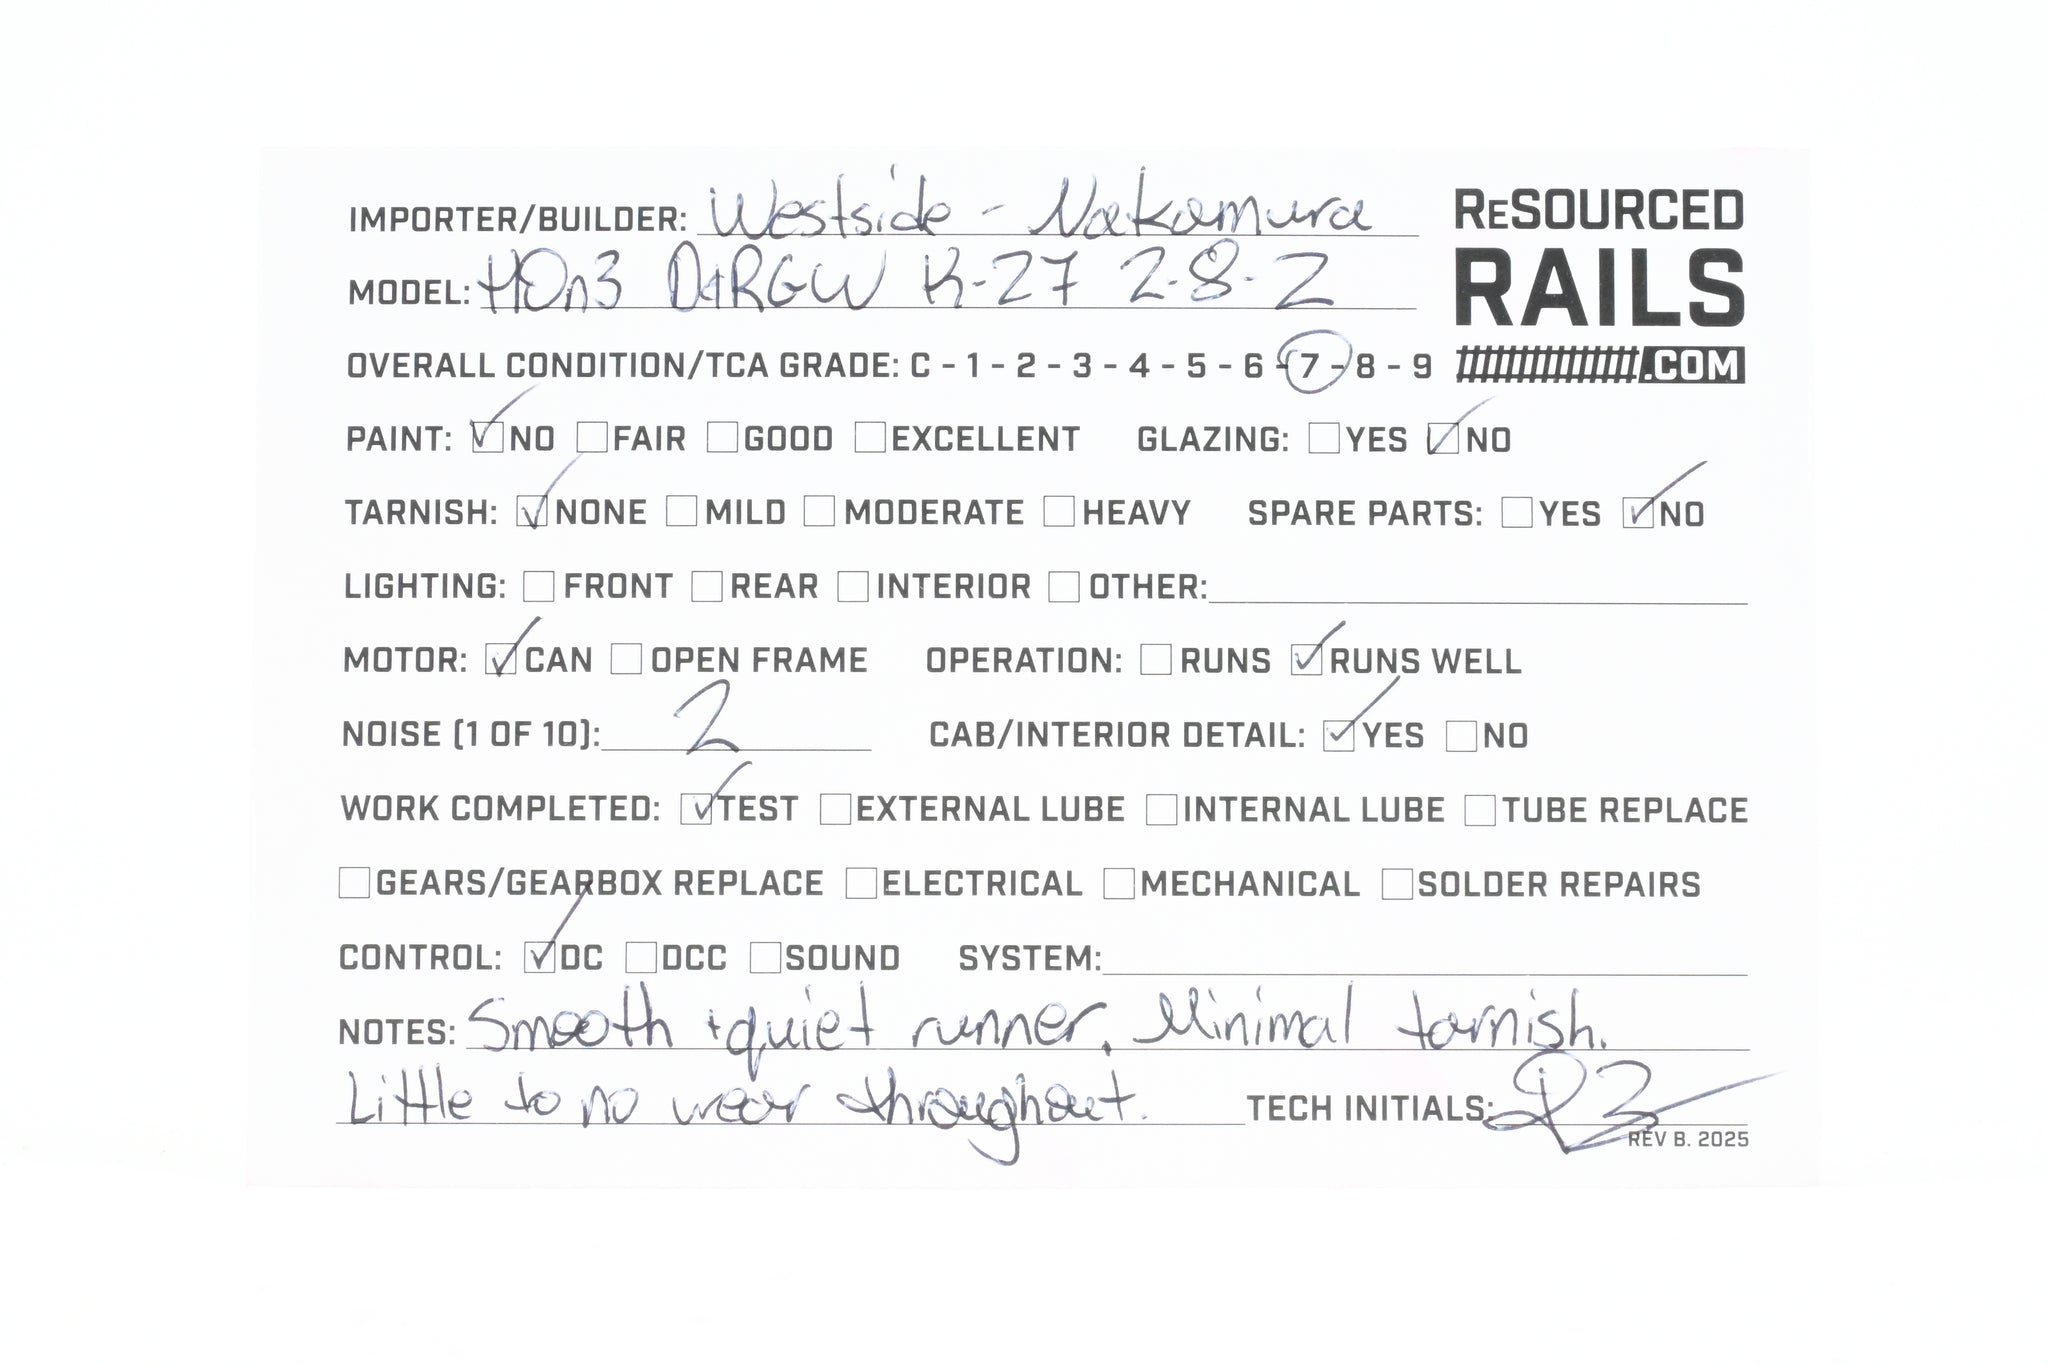 IMPORTER/BUILDER: Westside - Nakamura
RESOURCED
RAILS
.COM
MODEL: HOn3 D&RGW K-27 2-8-2
OVERALL CONDITION/TCA GRADE: C - 1 - 2 - 3 - 4 - 5 - 6 - 7 - 8 - 9
PAINT: ☑ NO ☐ FAIR ☐ GOOD ☐ EXCELLENT GLAZING: ☐ YES ☑ NO
TARNISH: ☑ NONE ☐ MILD ☐ MODERATE ☐ HEAVY SPARE PARTS: ☐ YES ☑ NO
LIGHTING: ☐ FRONT ☐ REAR ☐ INTERIOR ☐ OTHER:
MOTOR: ☑ CAN ☐ OPEN FRAME OPERATION: ☐ RUNS ☑ RUNS WELL
NOISE (1 OF 10): 2 CAB/INTERIOR DETAIL: ☑ YES ☐ NO
WORK COMPLETED: ☑ TEST ☐ EXTERNAL LUBE ☐ INTERNAL LUBE ☐ TUBE REPLACE
☐ GEARS/GEARBOX REPLACE ☐ ELECTRICAL ☐ MECHANICAL ☐ SOLDER REPAIRS
CONTROL: ☑ DC ☐ DCC ☐ SOUND SYSTEM:
NOTES: Smooth + quiet runner. Minimal tarnish.
Little to no wear throughout. TECH INITIALS:
REV B. 2025